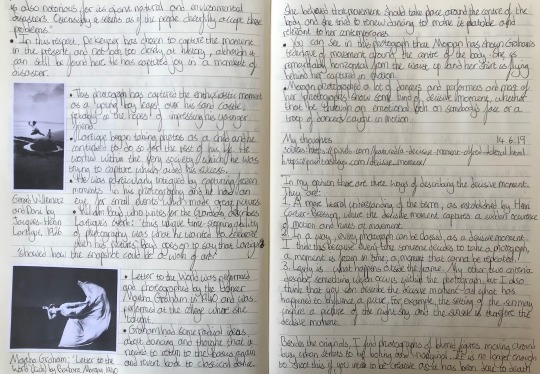 is also notorious for its giant natural and environmental
disasters. Occasionally it seems as if the people cheerfully accept these
problems."
• In this respect, De Keyzer has chosen to capture the moment
in the present, and not look too closely at history, although it
can still be found here. He has captured joy in a moment of
disaster.
• This photograph has captured the
moment as a young boy leaps over his sand castle,
probably in the hopes of impressing the younger
• Lartigue began taking photos as a child and he
continued to do so for the rest of his life. He
worked within the very society which he was
trying to capture which aided his success.
• He was particularly intrigued by capturing
moments in his photography and he had a keen
eye for small events which made great pictures
• William Boyd, who writes for the Guardian, describes
Lartigue's work: "this unique time-stopping ability
of photography was what he wanted to celebrate
with his pictures". Boyd goes on to say that Lartigue
"showed how the snapshot could be a work of art."
Gerard Willemetz
and Dani by
Jacques-Henri
Lartigue, 1926
• Letter to the World was performed
and photographed by the dancer
Martha Graham in 1940 and was
performed at the college where she
taught.
• Graham had some radical ideas
about dancing and thought that it
needed to return to the basics again
and revert back to classical dance.
Martha Graham: "Letter to the
World (Kick) by Barbara Morgan, 1940
She believed that movement should take place around the centre of the
body and she tried to renew dancing to make it relatable and
relevant to her contemporaries.
• You can see in this photograph that Morgan has shown Graham's
technique of movement around the centre of the body. She is
remarkably horizontal from the waist up and her skirt is flying
behind her, captured in motion.
• Morgan photographed a lot of dancers and performers and most of
her photographs show some kind of decisive moment, whether
that be through an emotional look on somebody's face or a
troop of dancers caught in motion.
My thoughts 14.6.19
In my opinion there are three ways of describing the decisive moment.
They are:
1. A more literal understanding of the term, as established by Henri
Cartier-Bresson, where the decisive moment captures a sudden occurrence
of motion and halts its movement.
2. In a way, every photograph can be classed as a decisive moment.
I think this because every time someone decides to take a photograph,
a moment is frozen in time; a moment that cannot be repeated.
3. Lastly is what happens outside the frame. My other two criteria
describe something which occurs within the photograph but I also
think that you can describe the decisive moment as what has
happened to influence a picture. For example, the setting of the sun may
inspire a picture of the night sky and the sunset is therefore the
decisive moment.
Besides the originals, I find photographs of blurred figures moving around
busy urban streets to be boring and unoriginal. It is no longer enough
to shoot this if you want to be creative as it has been done to death